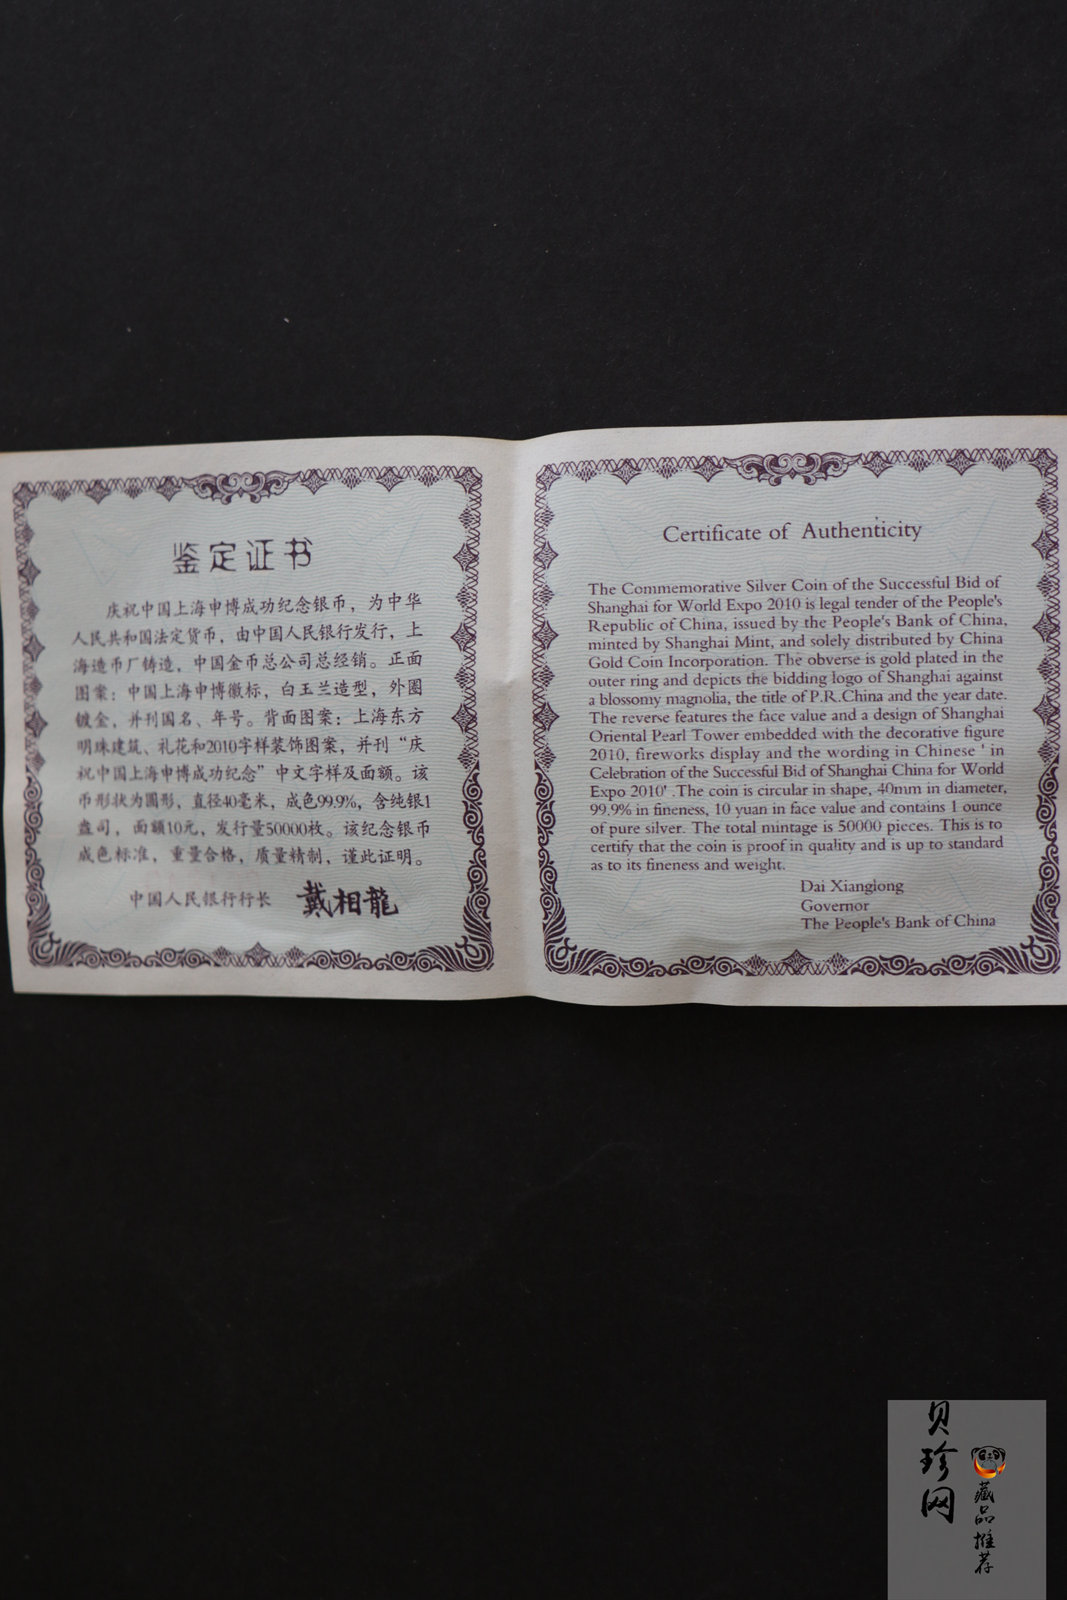 鉴定证书
庆祝中国上海申博成功纪念银币，为中华
人民共和国法定货币，由中国人民银行发行，上
海造币厂铸造，中国金币总公司总经销。正面
图案：中国上海申博徽标，白玉兰造型，外圈
镀金，并刊国名、年号。背面图案：上海东方
明珠建筑、礼花和2010字样装饰图案，并刊“庆
祝中国上海申博成功纪念”中文字样及面额。该
币形状为圆形，直径40毫米，成色99.9%，含纯银1
盎司，面额10元，发行量50000枚。该纪念银币
成色标准，重量合格，质量精制，谨此证明。
中国人民银行行长 戴相龍
Certificate of Authenticity
The Commemorative Silver Coin of the Successful Bid of
Shanghai for World Expo 2010 is legal tender of the People's
Republic of China, issued by the People's Bank of China,
minted by Shanghai Mint, and solely distributed by China
Gold Coin Incorporation. The obverse is gold plated in the
outer ring and depicts the bidding logo of Shanghai against
a blossomy magnolia, the title of P.R.China and the year date.
The reverse features the face value and a design of Shanghai
Oriental Pearl Tower embedded with the decorative figure
2010, fireworks display and the wording in Chinese ' in
Celebration of the Successful Bid of Shanghai China for World
Expo 2010' .The coin is circular in shape, 40mm in diameter,
99.9% in fineness, 10 yuan in face value and contains 1 ounce
of pure silver. The total mintage is 50000 pieces. This is to
certify that the coin is proof in quality and is up to standard
as to its fineness and weight.
Dai Xianglong
Governor
The People's Bank of China
贝珍网
藏品推荐